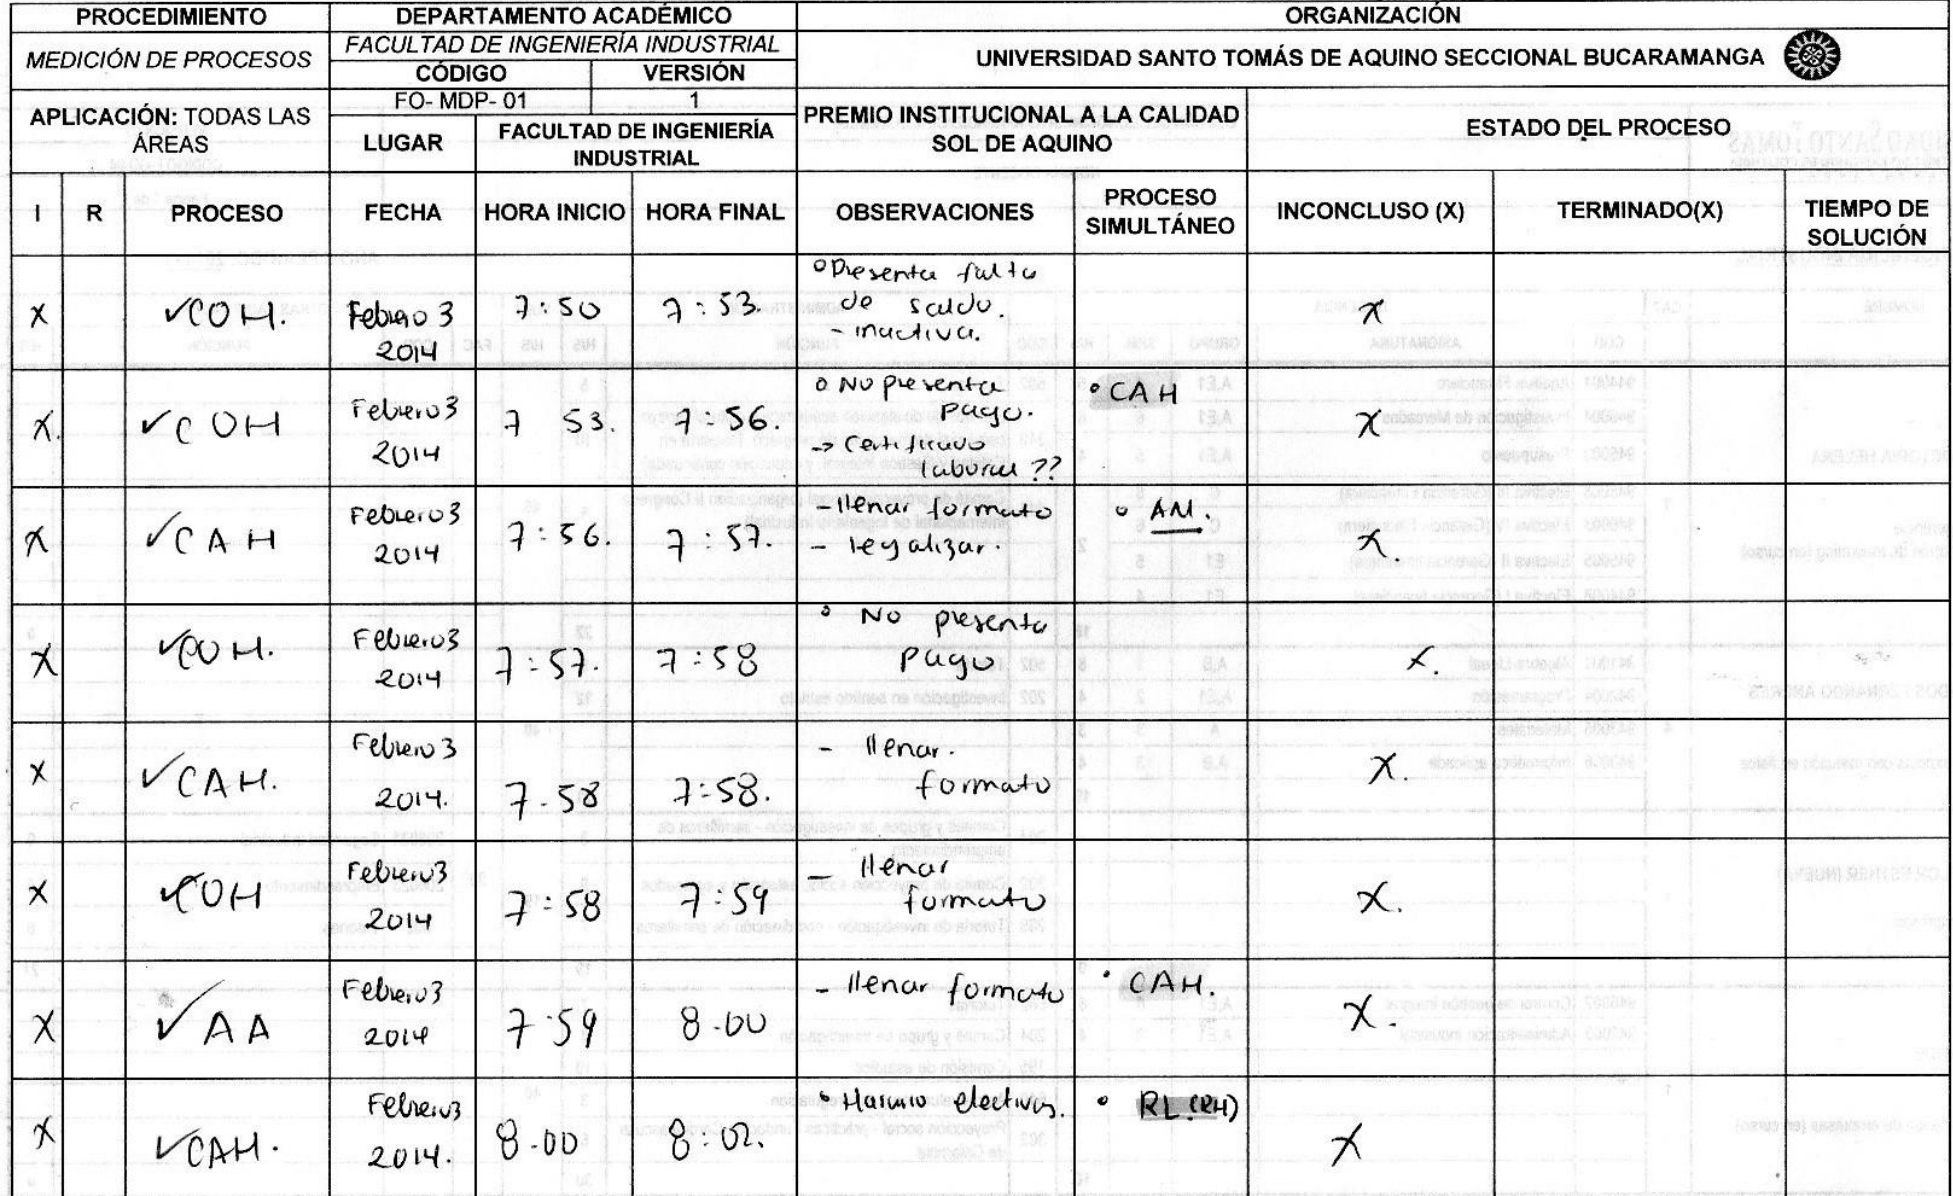 PROCEDIMIENTO DEPARTAMENTO ACADÉMICO ORGANIZACIÓN
MEDICIÓN DE PROCESOS FACULTAD DE INGENIERÍA INDUSTRIAL UNIVERSIDAD SANTO TOMÁS DE AQUINO SECCIONAL BUCARAMANGA
CÓDIGO VERSIÓN
FO- MDP- 01 1
APLICACIÓN: TODAS LAS ÁREAS LUGAR FACULTAD DE INGENIERÍA INDUSTRIAL PREMIO INSTITUCIONAL A LA CALIDAD SOL DE AQUINO ESTADO DEL PROCESO
I R PROCESO FECHA HORA INICIO HORA FINAL OBSERVACIONES PROCESO SIMULTÁNEO INCONCLUSO (X) TERMINADO(X) TIEMPO DE SOLUCIÓN
X ✓COH. Febrero 3 2014 7:50 7:53. Presenta falta de saldo. - inactiva. X
X. ✓COH Febrero 3 2014 7 53. 7:56. No presenta pago. → Certificado laboral ?? CAH X
X ✓CAH Febrero 3 2014 7:56. 7:57. - llenar formato - legalizar. AM. X.
X ✓COH. Febrero 3 2014 7:57. 7:58 No presenta pago X.
X ✓CAH. Febrero 3 2014. 7-58 7:58. - llenar. formato X.
X ✓COH Febrero 3 2014 7:58 7:59 - llenar formato X.
X ✓AA Febrero 3 2014 7:59 8-00 - llenar formato CAH. X.
X ✓CAH. Febrero 3 2014. 8-00 8:02. electivas. RL (RH) X